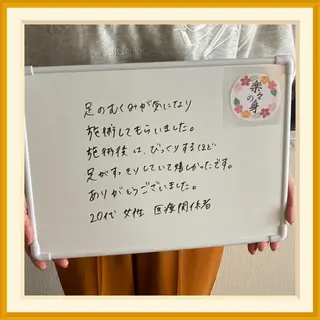 楽々の身
足のむくみが気になり
施術してもらいました。
施術後は、びっくりするほど
足がすっきりしていて嬉しかったです。
ありがとうございました。
20代 女性 医療関係者